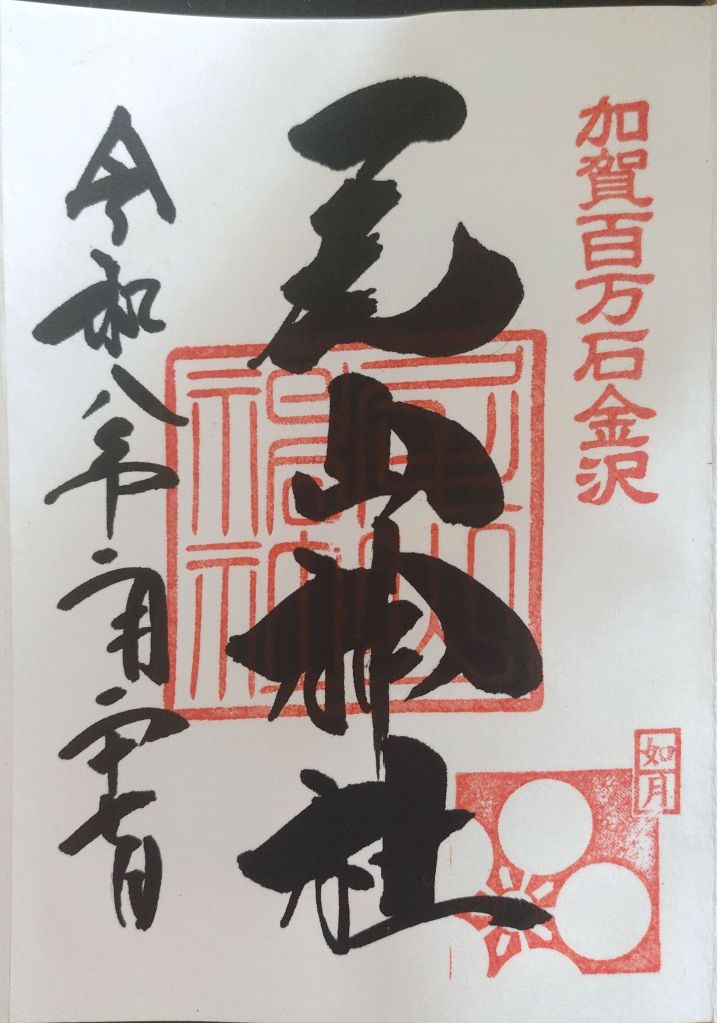 加賀百万石金沢
尾山神社
如月
令和八年二月二十七日